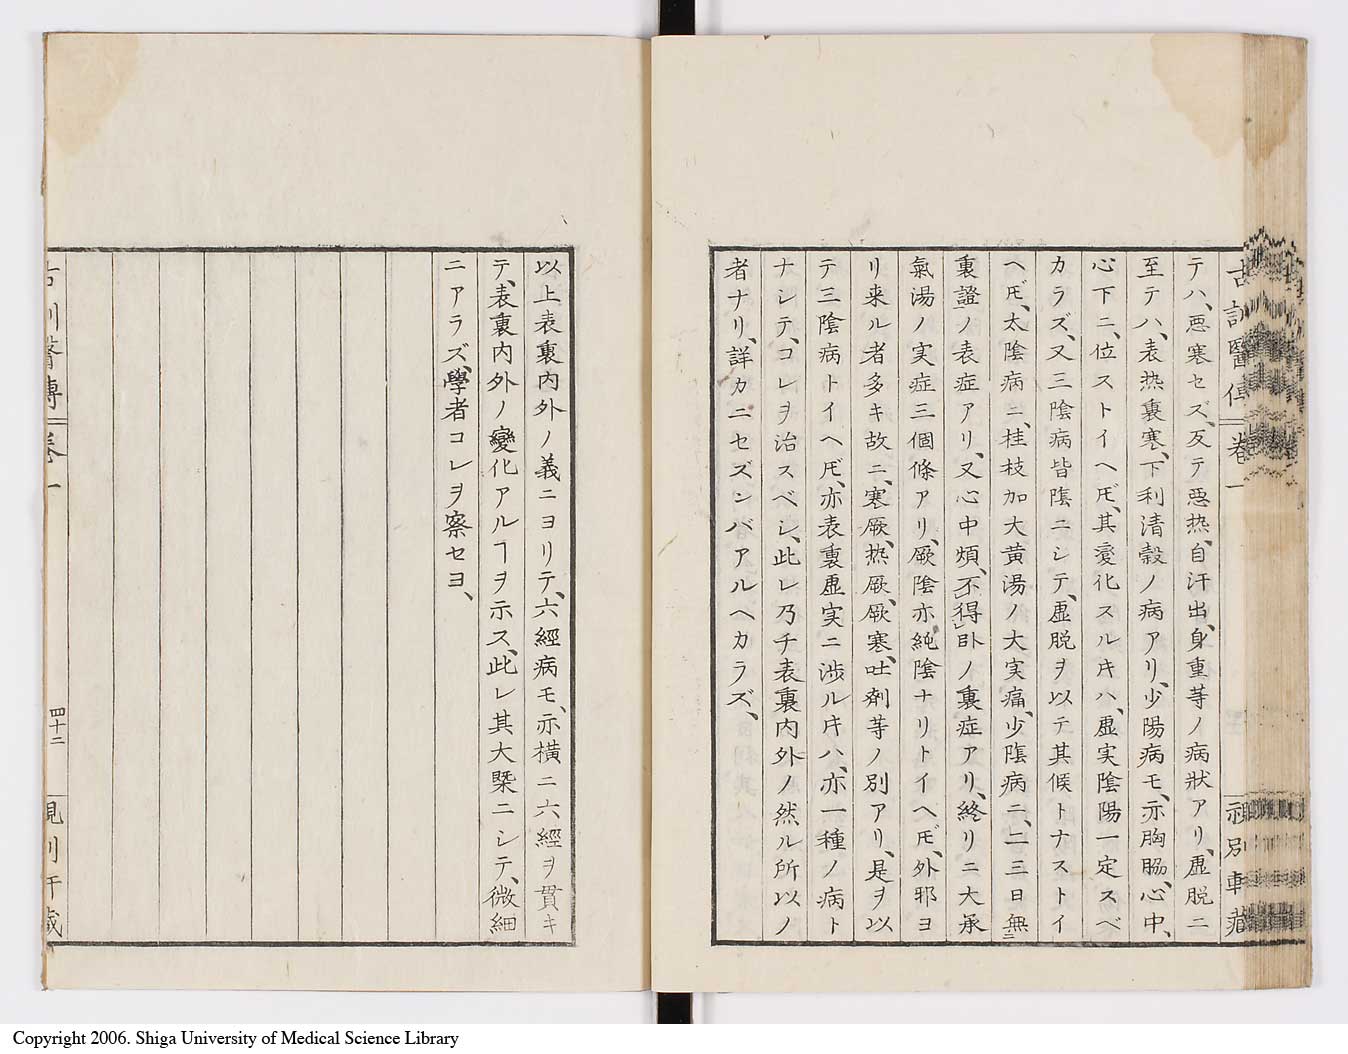 テハ、悪寒セズ、反テ悪热、自汗出、身重等ノ病狀アリ、虚脱ニ
至テハ、表热裏寒、下利清穀ノ病アリ、少陽病モ、亦胸脇、心中、
心下ニ、位ストイヘ𪜈、其変化スルキハ、虚実陰陽一定スベ
カラズ、又三陰病皆陰ニシテ、虚脱ヲ以テ其候トナストイ
ヘ𪜈、太陰病ニ、桂枝加大黄湯ノ大実痛、少陰病ニ、二三日無㆓
裏證ノ表症アリ、又心中煩、不得㆑卧ノ裏症アリ、終リニ大承
氣湯ノ実症三個條アリ、厥陰亦純陰ナリトイヘ𪜈、外邪ヨ
リ来ル者多キ故ニ、寒厥、热厥、厥寒、吐剤等ノ別アリ、是ヲ以
テ三陰病トイヘ𪜈、亦表裏虚実ニ渉ルキハ、亦一種ノ病ト
ナシテ、コレヲ治スベシ、此レ乃チ表裏内外ノ然ル所以ノ
者ナリ、詳カニセズンバアルヘカラズ、
古訓醫傳 卷一
以上表裏内外ノ義ニヨリテ、六經病モ、亦橫ニ六經ヲ貫キ
テ、表裏内外ノ變化アルヿヲ示ス、此レ其大槩ニシテ、微細
ニアラズ、學者コレヲ察セヨ、
四十二
Copyright 2006. Shiga University of Medical Science Library